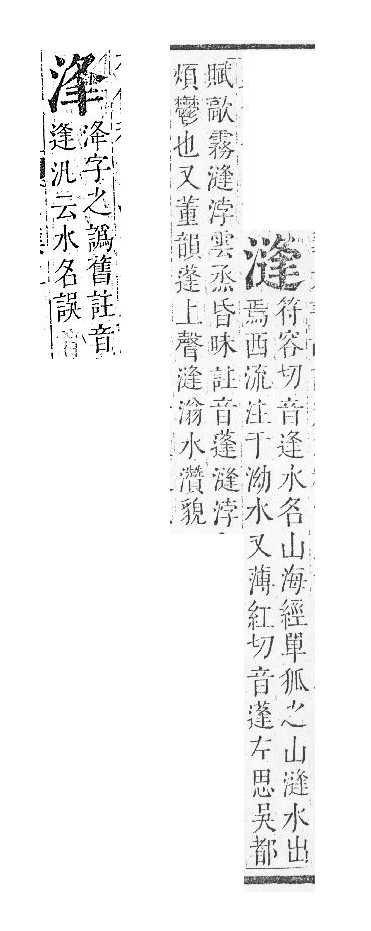 漨
符容切音逢水名山海經單狐之山漨水出
焉西流注于泑水又薄紅切音蓬左思吳都
賦歊霧漨浡雲烝昏昧註音蓬漨浡
煩鬱也又董韻蓬上聲漨滃水瀵貌
浲
洚字之譌舊註音
逢汎云水名誤